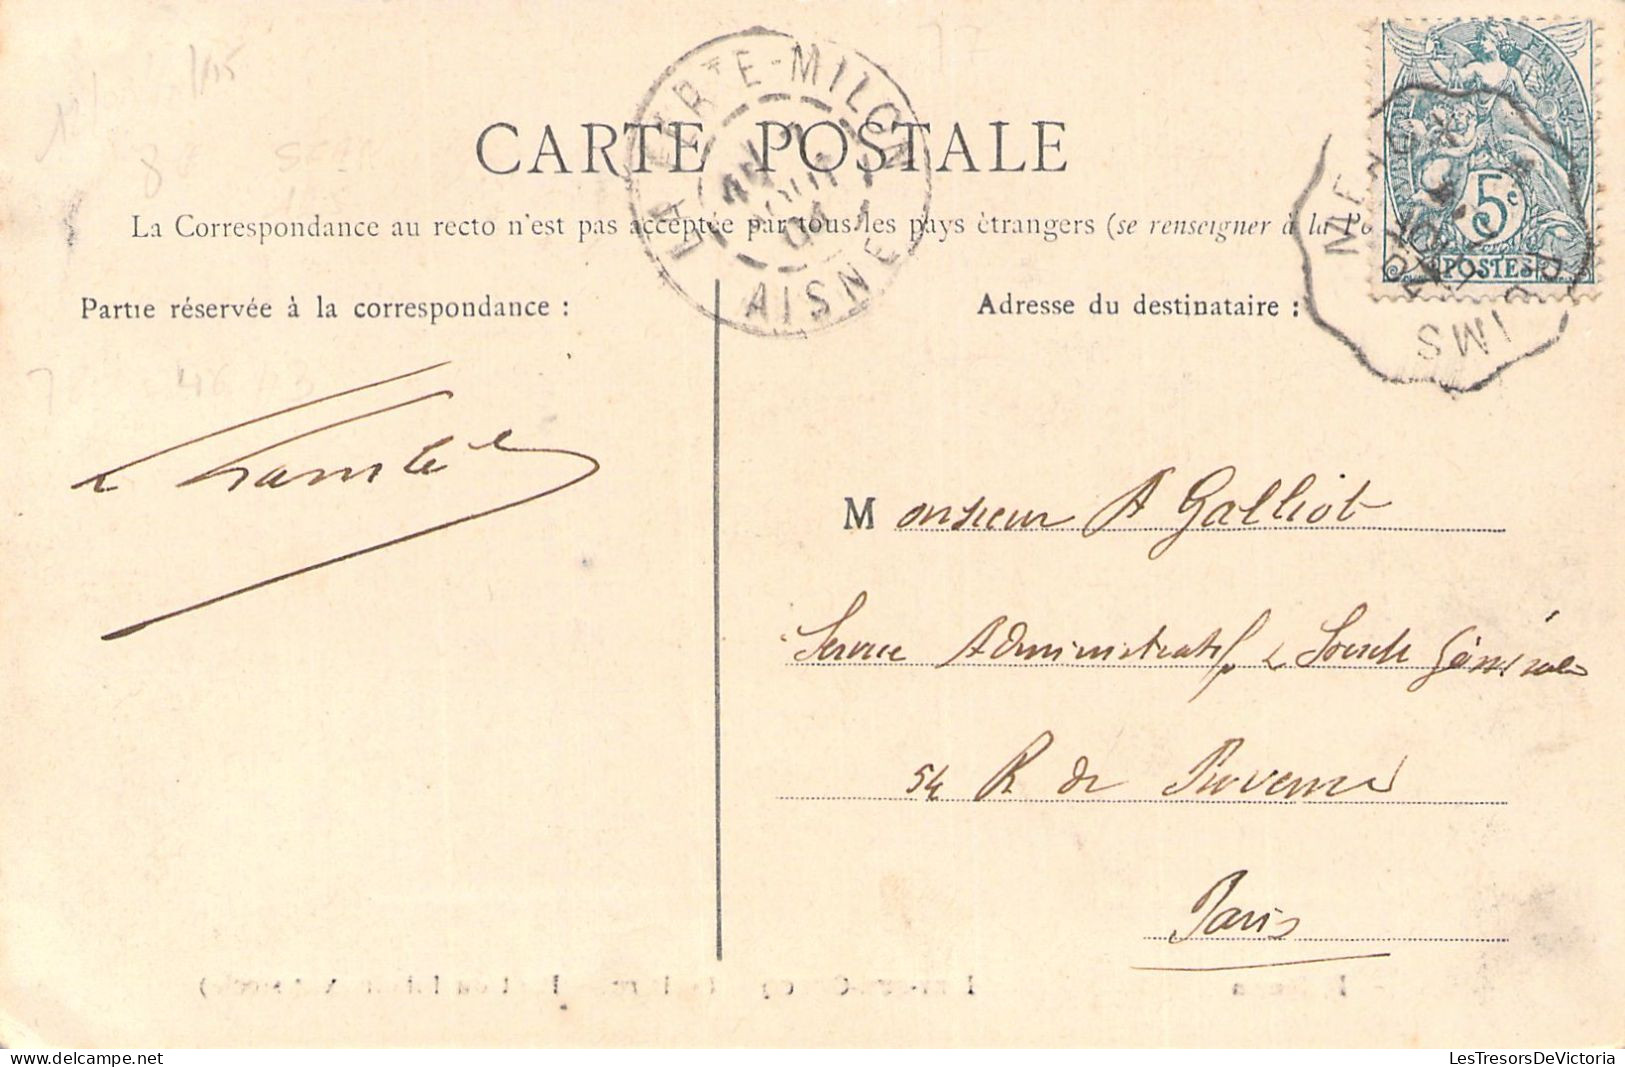 CARTE POSTALE
La Correspondance au recto n'est pas acceptée par tous les pays étrangers (se renseigner à la Po
Partie réservée à la correspondance :
Adresse du destinataire :
LA FERTÉ-MILON
AISNE
FRANÇAISE
5c
POSTES
Monsieur A Galliot
Service Administratif Société Générale
54 R de Provence
Paris
LesTresorsDeVictoria